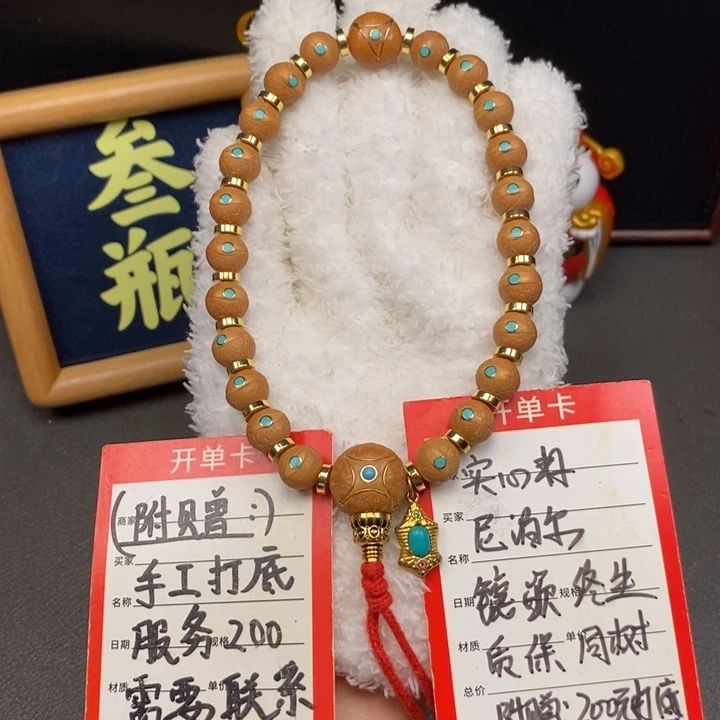 叁
瓶
开单卡
商家
(附贝赠:)
买家
手工打底
名称
日期 规格
服务200
材质 单价
需要联系
开单卡
实心籽
买家
尼泊尔
名称
日期 规格
镶嵌终生
材质 单价
质保同树
总价
附赠:200元打底